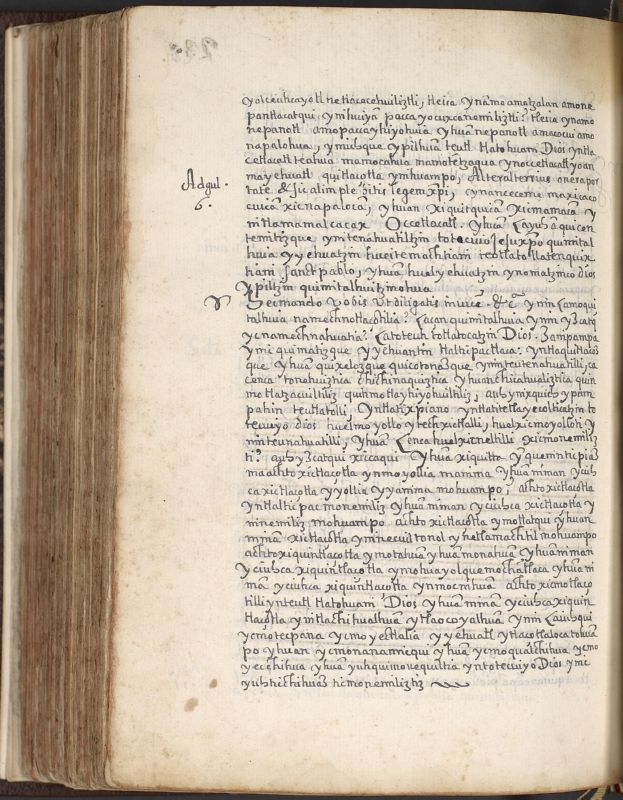 yolceuhcayotl netlacacehuiliztli, tleica ynamo amotzalan amone
pantlacatqui ynihuiyā paccayocuxcanemiliztli? tleica ynamo
nepanotl amopaccayhiyohuia yhuā nepanotl amocvcui amo
napalohua, ymiuhque ypilhua teutl tlatohuani Dios yntla
ceitlacatl teahua mamocahua mamotetzaqua ynoccetlacatl yoan
mayehuatl quitlacotla ymihuampo, Alter alterius onera por
tate & sic adimplebitis legem xp̄i,
Ad gal.
6.
cuicā xicnapalocā, yhuan xiquitquicā xicmamaca y
initlamamal cacax Occetlacatl. yhuā çayuhqui cen
temitizque ynitenahuatiltzin totecuio Jesuxpo quimital
huia yyehuatzin hueitemachtiani teotlatollatenquix
tiani Sanct pablo, yhuā huelyehuatzin ynomatzinco dios
ypiltzin quimitalhuitzinohua
Hec mando vobis vt diligatis inuicē. &c̄ ynin çamoqui
talhuia namechnotlacotilia? çacan quimitalhuia ynin yzcatq̄
ycnamechnahuatia? çatoteuh totlatocatzin Dios.
y mic quimatizque yyehuantin tlalticpactlaca. yntlaquitlacoz
que yhuā quixelozque quicotonazque yninteutenahuatilli, ca
cenca tonehuizhca chichinaquizhca yhuan chicahualiztica quin
motlatzacuiltiliz quinmotlayhiyohuiltiliz, auh ynixquich y pam
pahin teutlatolli,
tecuiyo dios huelmoyollo ytech xictlalli, huelxicmoyolloti y
ninteunahuatilli, yhuā çenca huelxicneltilli xicmonemiliz
ti? auh yzcatqui xiccaqui yhuā xiquitta yquenin ticpiaz
ma achto xictlacotla ynmoyollia manima yhuā niman yciuh
ca xictlacotla yyollia yyanima mohuanpo, achto xictlacotla
yntlalticpac monemiliz yhuā niman yciuhca xictlacotla y
ninemiliz mohuampo achto xictlacotla ymotlatqui yhuan
nimā xictlacotla ymnecuiltonol ynetlamachtil mohuampo
achto xiquintlacotla ymotahuā yhuā monahuā yhuā niman
yciuhca xiquintlacotla ymohuayolque mochatlaca yhuā ni
mā yciuhca xiquintlacotla ynmocnihuā achto xicmotlaço
tilli ynteutl tlatohuani Dios yhuā nimā yciuhca xiquin
tlacotla ynitlachihualhuā ytlaocoyalhuā ynin çaiuhqui
ycmotecpana ycmoyectlalia yyehuatl ytlacotlaloca tohuā
po yhuan ycmonanamicqui yhuā ycmoqualchihua ycmo
yecchihua yhuā yuhquimonequiltia yntotecuiyo Dios ynic
yuhticchihuaz ticmonemiliztiz